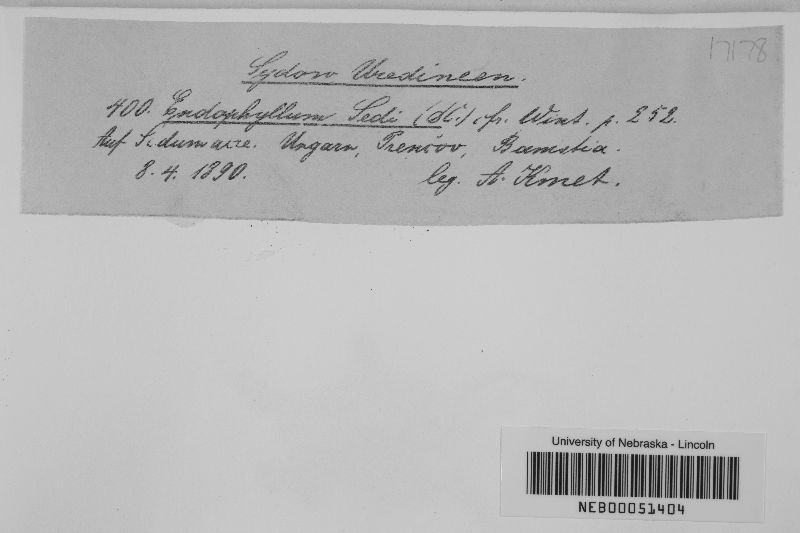 17178
Sydow Uredineen.
400. Endophyllum Sedi (DC.) cfr. Wint. p. 252.
Auf Sedum acre. Ungarn, Prenčov,
8. 4. 1890. leg. A. Kmet.
University of Nebraska - Lincoln
NEB00051404